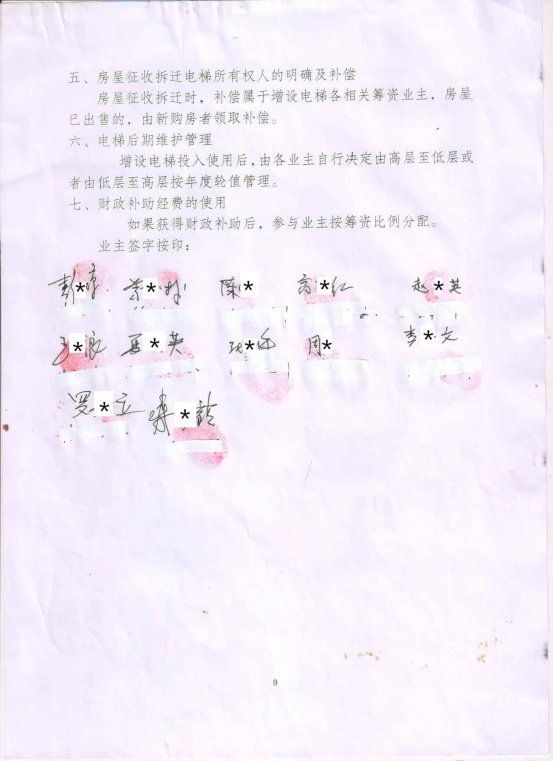 五、房屋征收拆迁电梯所有权人的明确及补偿
房屋征收拆迁时，补偿属于增设电梯各相关筹资业主，房屋
已出售的，由新购房者领取补偿。
六、电梯后期维护管理
增设电梯投入使用后，由各业主自行决定由高层至低层或
者由低层至高层按年度轮值管理。
七、财政补助经费的使用
如果获得财政补助后，参与业主按筹资比例分配。
业主签字按印：
彭*亭 *村 陈* 高*红 赵*英
王*浪 *英 张* 周* 李*文
罗*立 *
9